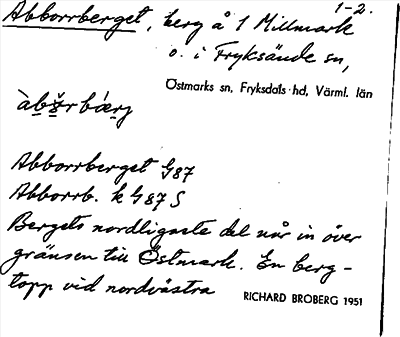 1-2.
Abborrberget, berg å 1 Millmark
o. i Fryksände sn,
Östmarks sn, Fryksdals hd, Värml. län
Abborrberget G87
Abborrb. k G87 S
Bergets nordligaste del når in över
gränsen till Östmark. En berg-
topp vid nordvästra
RICHARD BROBERG 1951